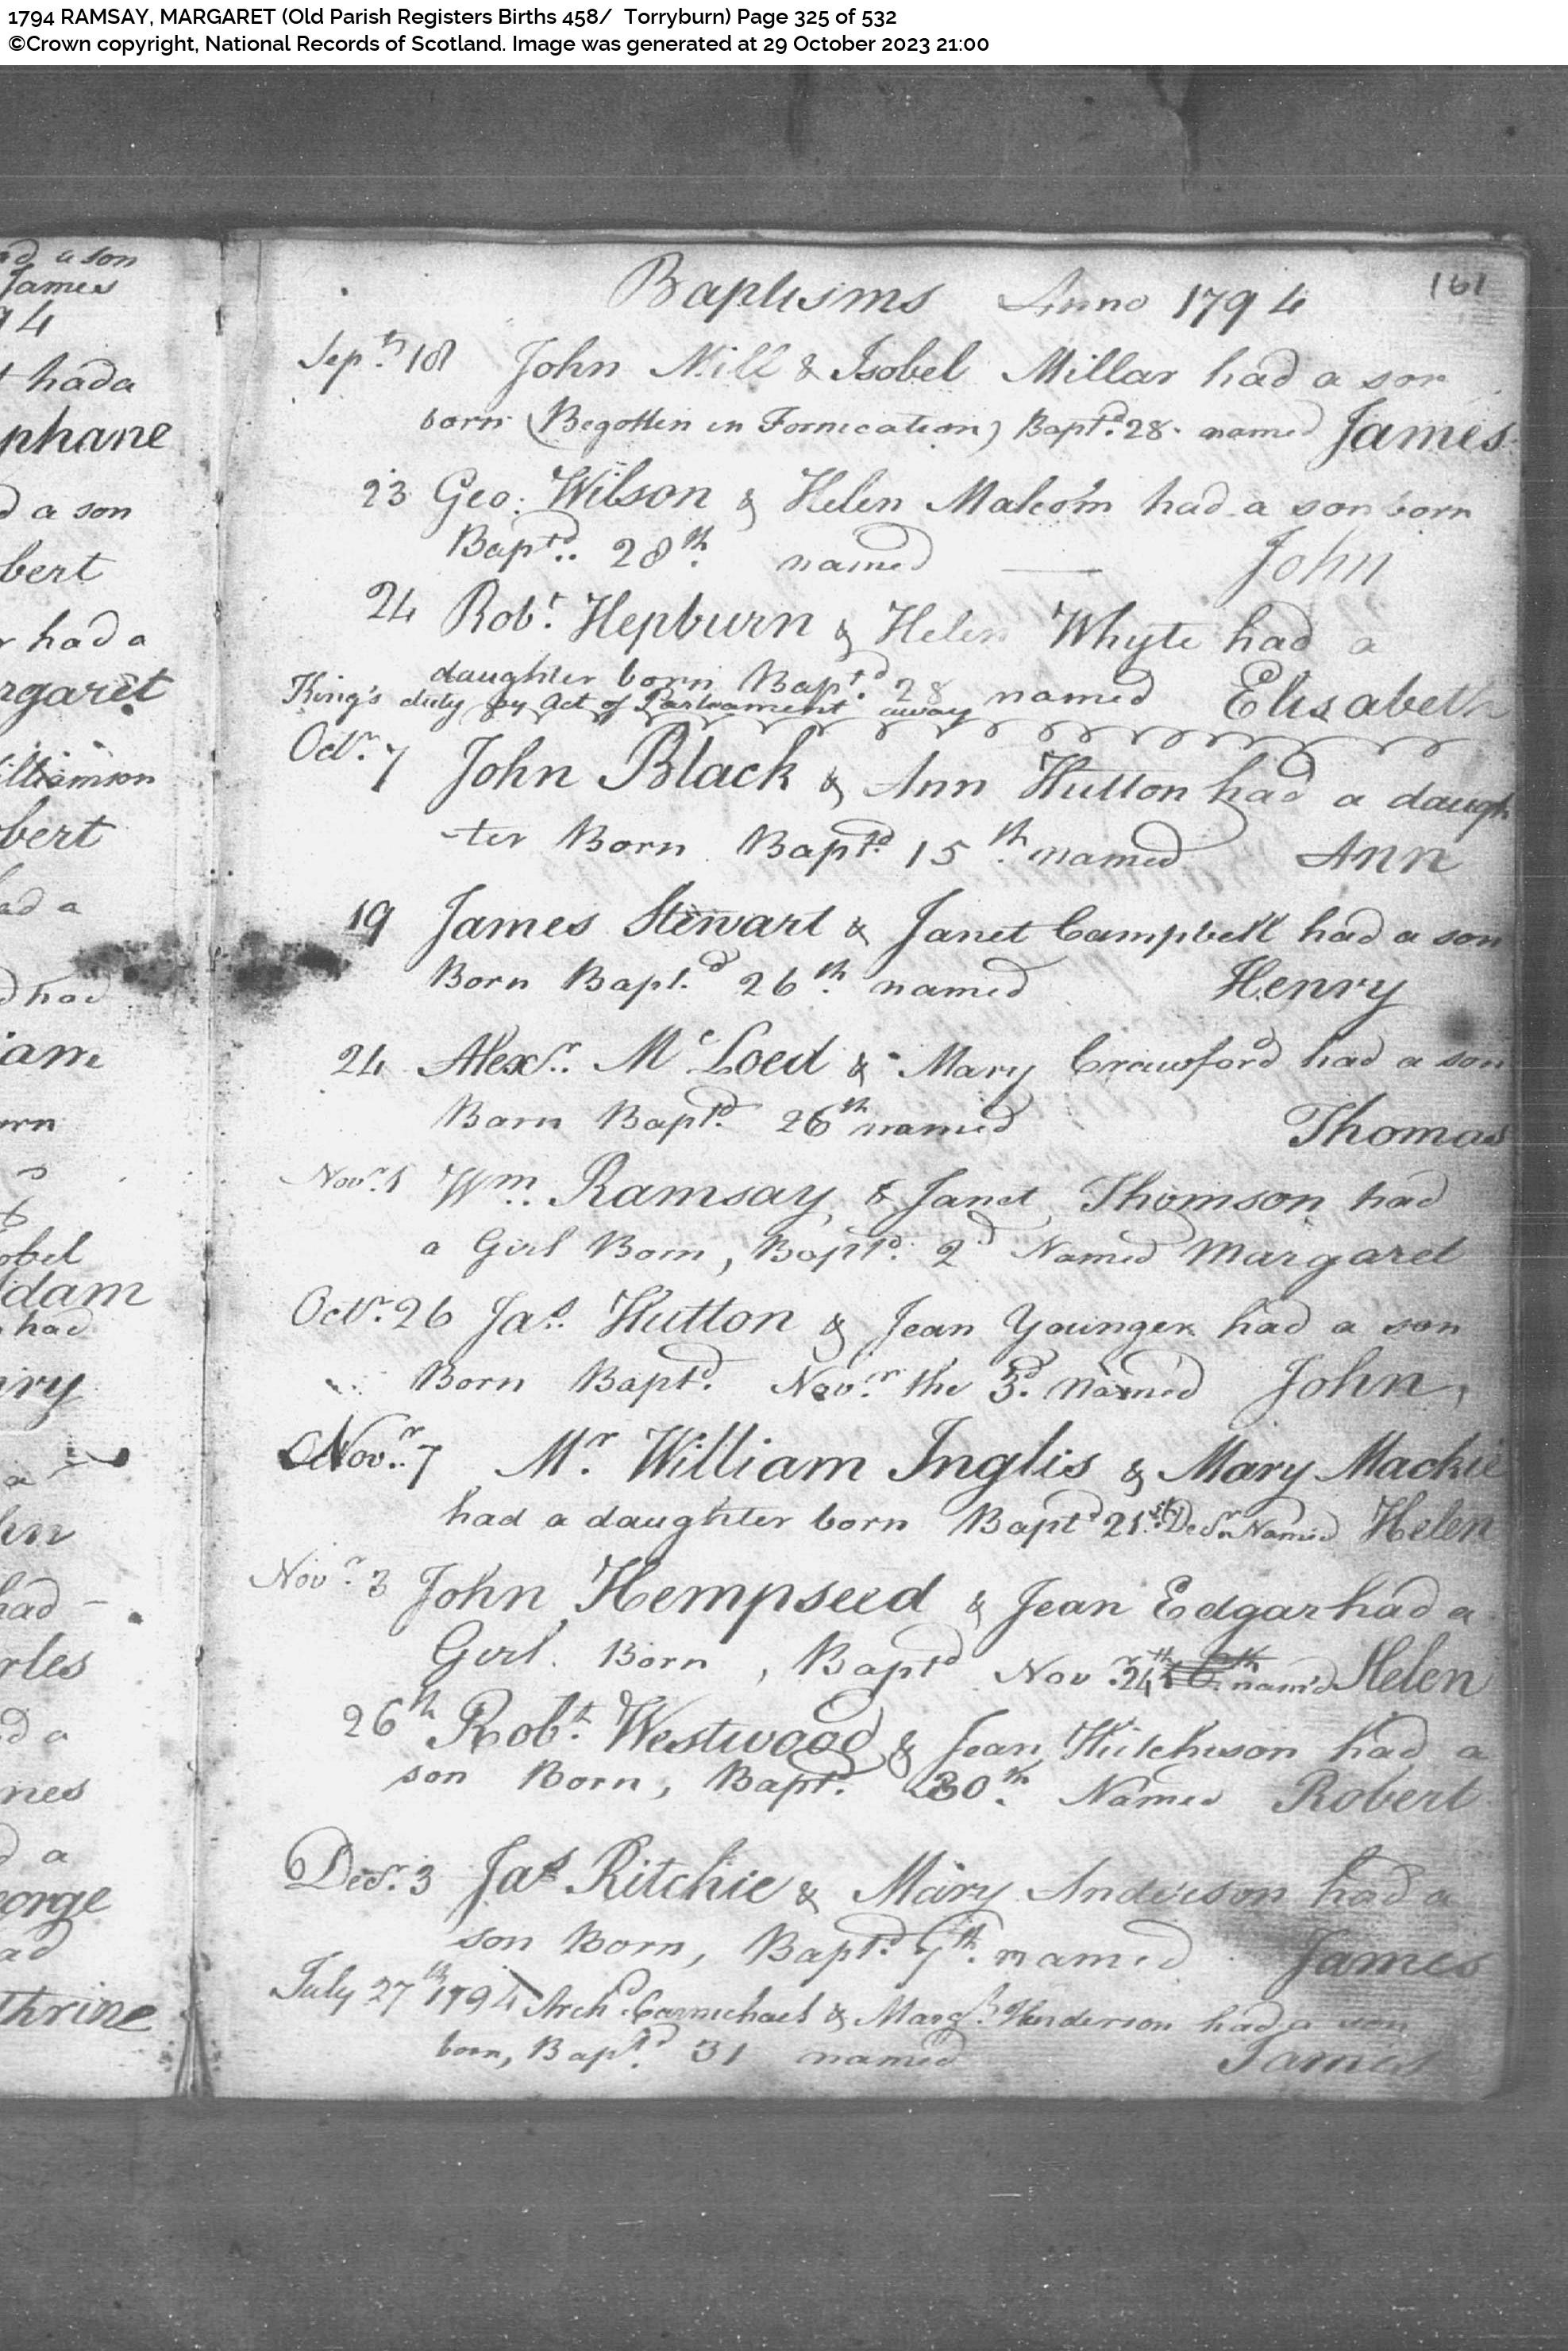 1794 RAMSAY, MARGARET (Old Parish Registers Births 458/ Torryburn) Page 325 of 532
©Crown copyright, National Records of Scotland. Image was generated at 29 October 2023 21:00
ad a son
James
94
t had a
phane
d a son
bert
r had a
rgaret
illiamson
bert
ad a
d had
iam
orn
obel
Adam
had
nry
a
hn
had –
rles
d a
mes
d a
eorge
ad
thrine
161
Baptisms Anno 1794
Sepr. 18 John Mill & Isobel Millar had a son
born (Begotten in Fornication) Baptd. 28. named James
23 Geo: Wilson & Helen Malcom had a son born
Baptd. 28th. named — John
24 Robt. Hepburn & Helen Whyte had a
daughter born Baptd. 28 named Elisabeth
King's duty by Act of Parliament away
Octr. 7 John Black & Ann Hutton had a daugh
-ter Born Baptd. 15th. named Ann
19 James Stewart & Janet Campbell had a son
Born Bapt.d 26th. named Henry
24 Alexr. Mc Loed & Mary Crawford had a son
Born Baptd. 26th named Thomas
Novr. 1 Wm. Ramsay, & Janet Thomson had
a Girl Born, Baptd. 2d Named Margaret
Octr. 26 Jas. Hutton & Jean Younger had a son
Born Baptd. Novr. the 3d. named John,
Novr. 7 Mr. William Inglis & Mary Mackie
had a daughter born Baptd 21st. Decr. Named Helen
Novr. 3 John Hempseed & Jean Edgar had a
Girl. Born, Baptd Nov. 24th named Helen
26th Robt. Westwood & Jean Hutchison had a
son Born, Baptd. 30th. Named Robert
Decr. 3 Jas Ritchie & Mary Anderson had a
son Born, Baptd. 7th. named James
July 27th 1794 Archd. Carmichael & Margt. Henderson had a son
born, Baptd. 31 named James